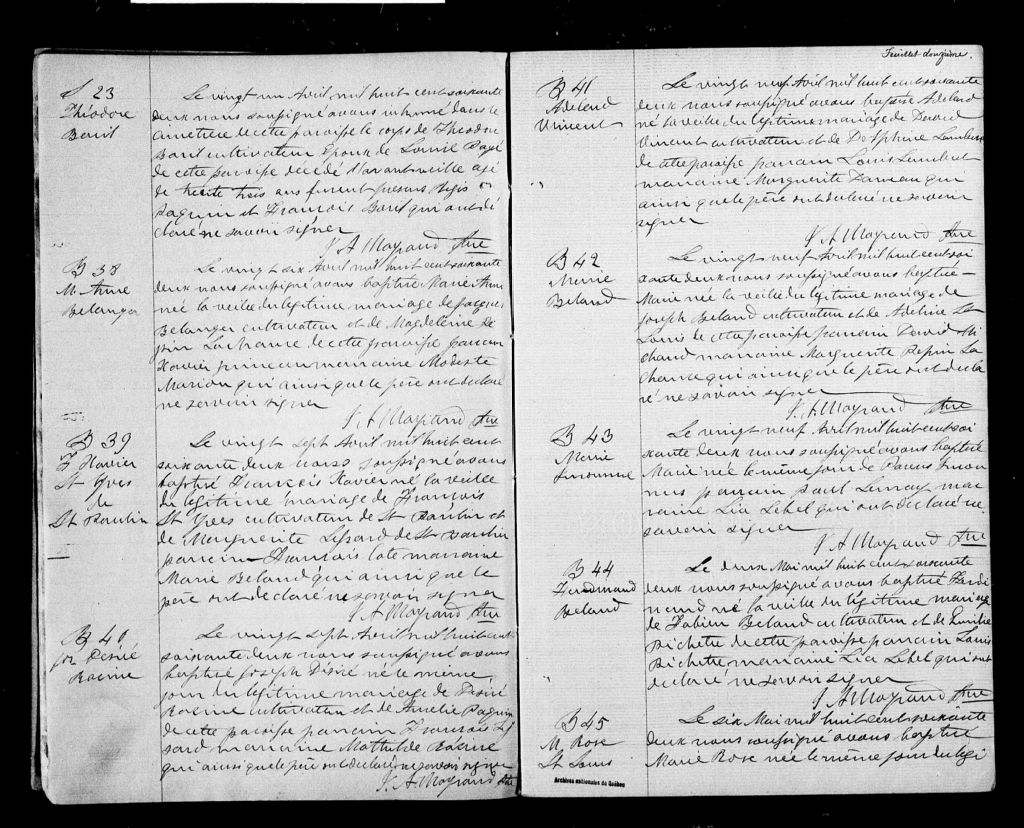 S 23
Théodore
Baril
Le vingt un Avril mil huit cent soixante
deux nous soussigné avons inhumé dans le
cimetière de cette paroisse le corps de Théodore
Baril cultivateur Epoux de Louise Pagé
de cette paroisse décédé l'avant veille agé
de trente trois ans furent présens Régis
Paquin et François Baril qui ont dé
claré ne savoir signer
V. A Mayrand Ptre
B 38
M. Anne
Belanger
Le vingt six Avril mil huit cent soixante
deux nous soussigné avons baptisé Marie Anne
née la veille du légitime mariage de Jacques
Belanger cultivateur et de Magdeleine Pe
pin Lachance de cette paroisse parrain
Xavier marraine Modeste
Marion qui ainsi que le père ont declaré
ne savoir signer
V. A Mayrand Ptre
B 39
F Xavier
St Yves
de
St Paulin
Le vingt sept Avril mil huit cent
soixante deux nous soussigné avons
baptisé François Xavier né la veille
du légitime mariage de François
St Yves cultivateur de St Paulin et
de Marguerite Lessard de St Paulin
parrain François marraine
Marie Beland qui ainsi que le
père ont declaré ne savoir signer
V. A Mayrand Ptre
B 40
Jos Désiré
Racine
Le vingt sept Avril mil huit cent
soixante deux nous soussigné avons
baptisé Joseph Désiré né le même
jour du légitime mariage de Désiré
Racine cultivateur et de Aurélie Paquin
de cette paroisse parrain François Les
sard marraine Mathilde Racine
qui ainsi que le père ont declaré ne savoir signer
V. A. Mayrand Ptre
Feuillet douzième.
B 41
Adelard
Vincent
Le vingt neuf Avril mil huit cent soixante
deux nous soussigné avons baptisé Adelard
né la veille du légitime mariage de David
Vincent cultivateur et de Delphine Lambert
de cette paroisse parrain Louis Lambert
marraine Marguerite qui
ainsi que le père ont declaré ne savoir
signer
V. A Mayrand Ptre
B 42
Marie
Beland
Le vingt neuf Avril mil huit cent soi
xante deux nous soussigné avons baptisé
Marie née la veille du légitime mariage de
Joseph Beland cultivateur et de Adeline St
Louis de cette paroisse parrain David Mi
chaud marraine Marguerite Pepin La
chance qui ainsi que le père ont décla
ré ne savoir signer
V. A Mayrand Ptre
B 43
Marie
Inconnue
Le vingt neuf Avril mil huit cent soi
xante deux nous soussigné avons baptisé
Marie née le même jour de Parens incon
nus parrain Paul Lemay mar
raine Lia Lebel qui ont déclaré ne
savoir signer
V. A Mayrand Ptre
B 44
Ferdinand
Beland
Le deux Mai mil huit cent soixante
deux nous soussigné avons baptisé Ferdi
nand né la veille du légitime mariage
de Fabien Beland cultivateur et de Emilie
Pichette de cette paroisse parrain Louis
Pichette marraine Lia Lebel qui ont
declaré ne savoir signer
V. A Mayrand Ptre
B 45
M. Rose
St Louis
Le six Mai mil huit cent soixante
deux nous soussigné avons baptisé
Marie Rose née le même jour du légi
Archives nationales du Québec